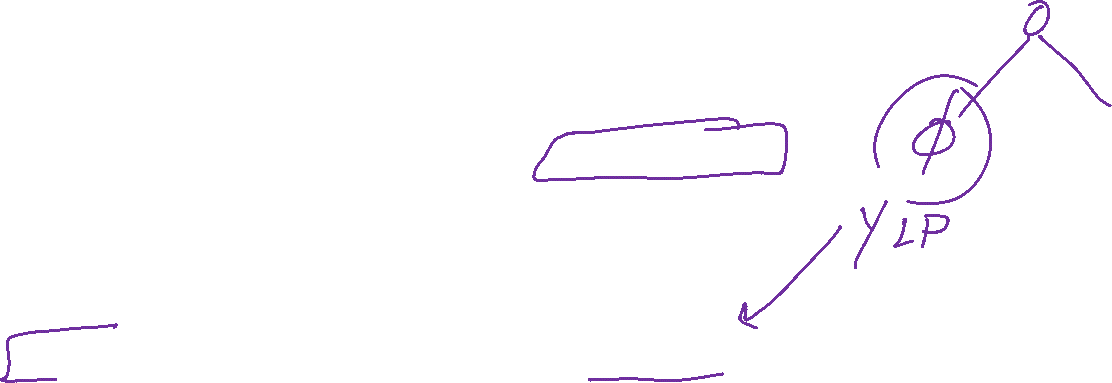 O
φ
YLP